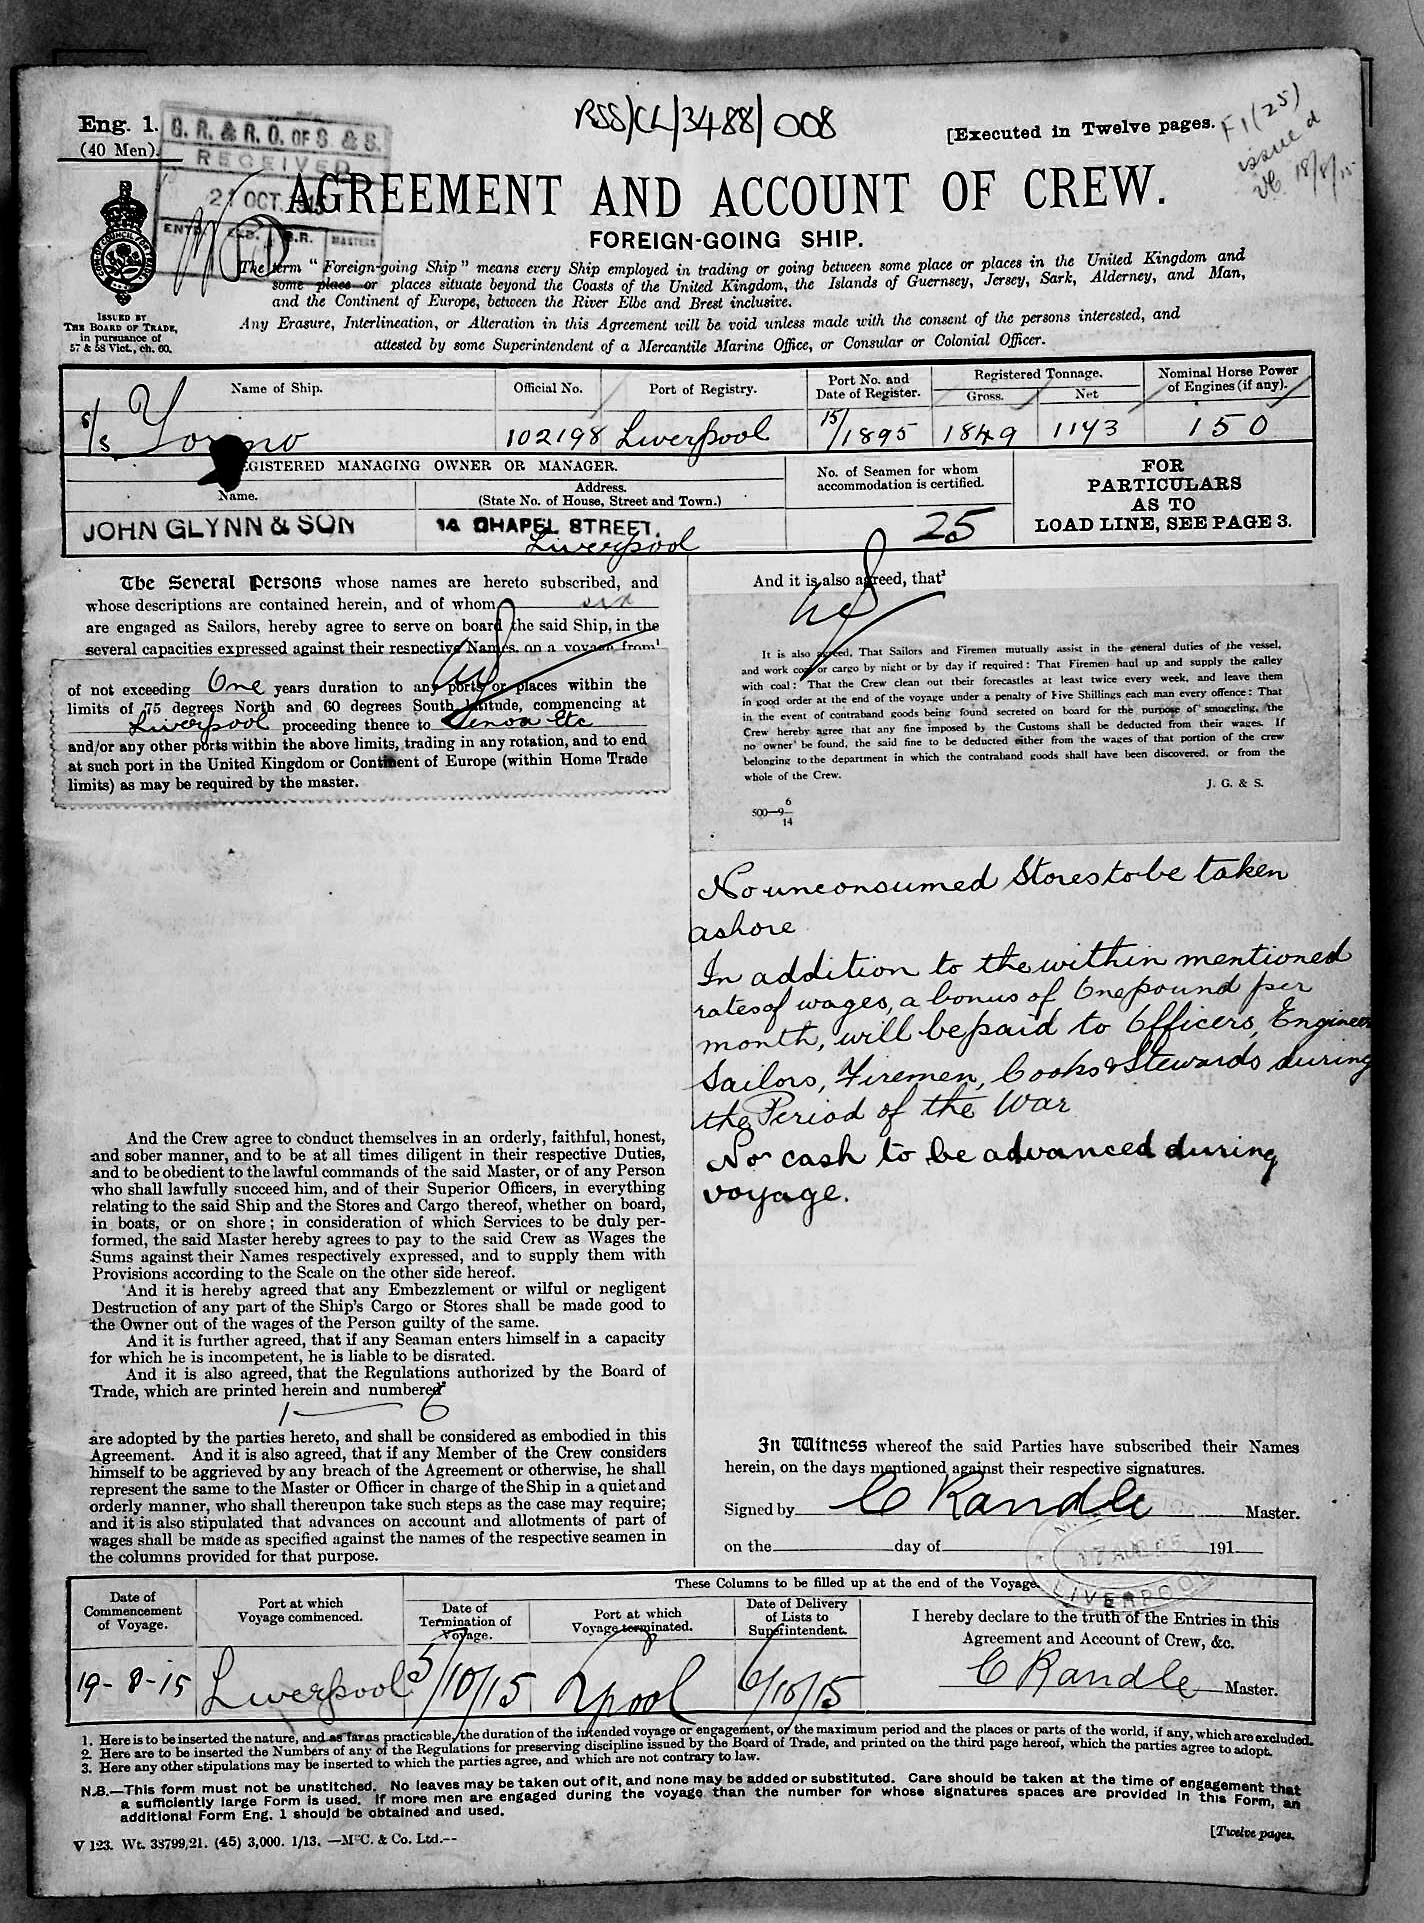 RSS/CL/3488/008
Eng. 1.
(40 Men).
G. R. & R. O. OF S. & S.
RECEIVED
21 OCT. 1915
ENTD.
B.R.
MASTERS
[Executed in Twelve pages.
F1 (25)
issued
18/8/15
AGREEMENT AND ACCOUNT OF CREW.
FOREIGN-GOING SHIP.
ISSUED BY
THE BOARD OF TRADE,
in pursuance of
57 & 58 Vict., ch. 60.
The term "Foreign-going Ship" means every Ship employed in trading or going between some place or places in the United Kingdom and
some place or places situate beyond the Coasts of the United Kingdom, the Islands of Guernsey, Jersey, Sark, Alderney, and Man,
and the Continent of Europe, between the River Elbe and Brest inclusive.
Any Erasure, Interlineation, or Alteration in this Agreement will be void unless made with the consent of the persons interested, and
attested by some Superintendent of a Mercantile Marine Office, or Consular or Colonial Officer.
Name of Ship.
Official No.
Port of Registry.
Port No. and
Date of Register.
Registered Tonnage.
Gross.
Net
Nominal Horse Power
of Engines (if any).
s/s
102198
Liverpool
15/1895
1849
1143
150
REGISTERED MANAGING OWNER OR MANAGER.
Name.
Address.
(State No. of House, Street and Town.)
No. of Seamen for whom
accommodation is certified.
FOR
PARTICULARS
AS TO
LOAD LINE, SEE PAGE 3.
JOHN GLYNN & SON
14 CHAPEL STREET,
Liverpool
25
The Several Persons whose names are hereto subscribed, and
whose descriptions are contained herein, and of whom six
are engaged as Sailors, hereby agree to serve on board the said Ship, in the
several capacities expressed against their respective Names, on a voyage from¹
of not exceeding One years duration to any ports or places within the
limits of 75 degrees North and 60 degrees South latitude, commencing at
Liverpool proceeding thence to Genoa Etc
and/or any other ports within the above limits, trading in any rotation, and to end
at such port in the United Kingdom or Continent of Europe (within Home Trade
limits) as may be required by the master.
And the Crew agree to conduct themselves in an orderly, faithful, honest,
and sober manner, and to be at all times diligent in their respective Duties,
and to be obedient to the lawful commands of the said Master, or of any Person
who shall lawfully succeed him, and of their Superior Officers, in everything
relating to the said Ship and the Stores and Cargo thereof, whether on board,
in boats, or on shore; in consideration of which Services to be duly per-
formed, the said Master hereby agrees to pay to the said Crew as Wages the
Sums against their Names respectively expressed, and to supply them with
Provisions according to the Scale on the other side hereof.
And it is hereby agreed that any Embezzlement or wilful or negligent
Destruction of any part of the Ship's Cargo or Stores shall be made good to
the Owner out of the wages of the Person guilty of the same.
And it is further agreed, that if any Seaman enters himself in a capacity
for which he is incompetent, he is liable to be disrated.
And it is also agreed, that the Regulations authorized by the Board of
Trade, which are printed herein and numbered²
1 — 6
are adopted by the parties hereto, and shall be considered as embodied in this
Agreement. And it is also agreed, that if any Member of the Crew considers
himself to be aggrieved by any breach of the Agreement or otherwise, he shall
represent the same to the Master or Officer in charge of the Ship in a quiet and
orderly manner, who shall thereupon take such steps as the case may require;
and it is also stipulated that advances on account and allotments of part of
wages shall be made as specified against the names of the respective seamen in
the columns provided for that purpose.
And it is also agreed, that³
It is also agreed, That Sailors and Firemen mutually assist in the general duties of the vessel,
and work coal or cargo by night or by day if required: That Firemen haul up and supply the galley
with coal: That the Crew clean out their forecastles at least twice every week, and leave them
in good order at the end of the voyage under a penalty of Five Shillings each man every offence: That
in the event of contraband goods being found secreted on board for the purpose of smuggling, the
Crew hereby agree that any fine imposed by the Customs shall be deducted from their wages. If
no owner be found, the said fine to be deducted either from the wages of that portion of the crew
belonging to the department in which the contraband goods shall have been discovered, or from the
whole of the Crew.
J. G. & S.
500—9 6/14
No unconsumed Stores to be taken
ashore
In addition to the within mentioned
rates of wages, a bonus of One pound per
month, will be paid to Officers, Engineers
Sailors, Firemen, Cooks & Stewards during
the Period of the War
No cash to be advanced during
voyage.
In Witness whereof the said Parties have subscribed their Names
herein, on the days mentioned against their respective signatures.
Signed by C Randle Master.
on the day of 191
LIVERPOOL
Date of
Commencement
of Voyage.
Port at which
Voyage commenced.
These Columns to be filled up at the end of the Voyage.
Date of
Termination of
Voyage.
Port at which
Voyage terminated.
Date of Delivery
of Lists to
Superintendent.
I hereby declare to the truth of the Entries in this
Agreement and Account of Crew, &c.
19-8-15
Liverpool
5/10/15
Lpool
6/10/15
C Randle Master.
1. Here is to be inserted the nature, and as far as practicable, the duration of the intended voyage or engagement, or the maximum period and the places or parts of the world, if any, which are excluded.
2. Here are to be inserted the Numbers of any of the Regulations for preserving discipline issued by the Board of Trade, and printed on the third page hereof, which the parties agree to adopt.
3. Here any other stipulations may be inserted to which the parties agree, and which are not contrary to law.
N.B.—This form must not be unstitched. No leaves may be taken out of it, and none may be added or substituted. Care should be taken at the time of engagement that
a sufficiently large Form is used. If more men are engaged during the voyage than the number for whose signatures spaces are provided in this Form, an
additional Form Eng. 1 should be obtained and used.
V 123. Wt. 38799,21. (45) 3,000. 1/13. —McC. & Co. Ltd.--
[Twelve pages.